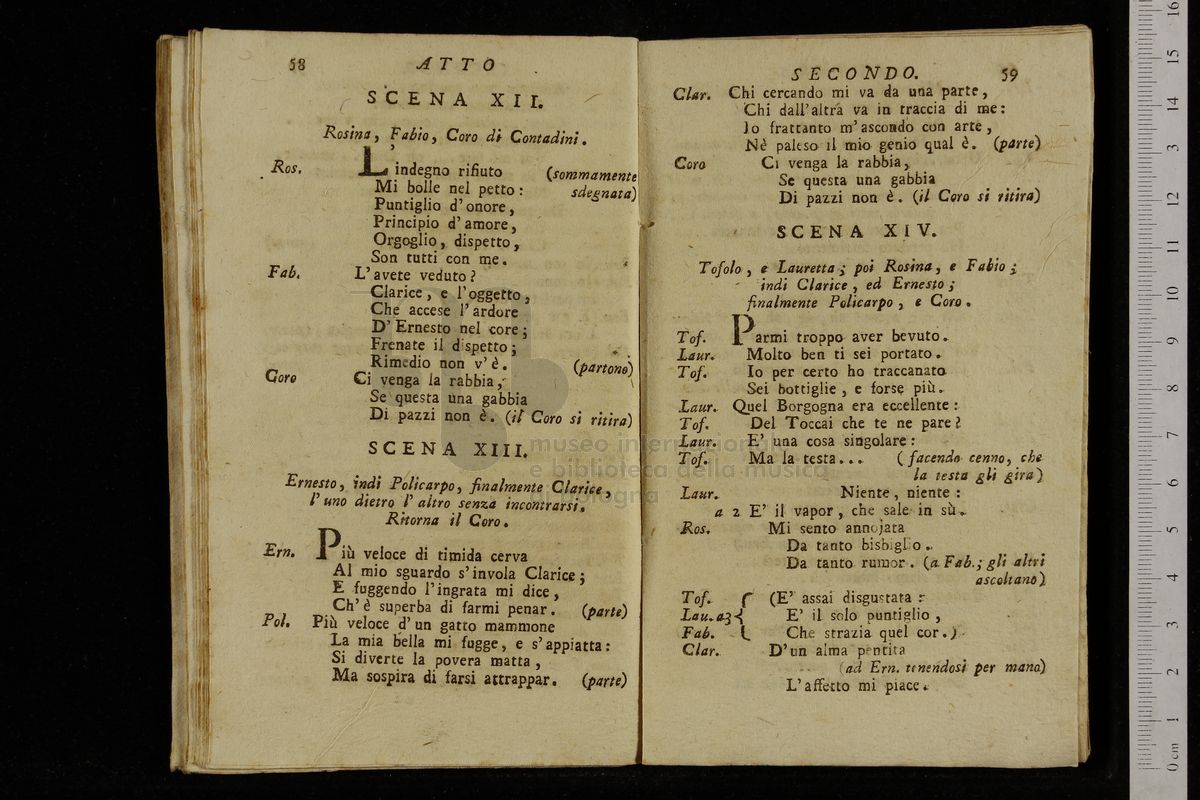 58
ATTO
SCENA XII.
Rosina, Fabio, Coro di Contadini.
Ros. L'indegno rifiuto (sommamente
Mi bolle nel petto: sdegnata)
Puntiglio d'onore,
Principio d'amore,
Orgoglio, dispetto,
Son tutti con me.
Fab. L'avete veduto?
Clarice, e l'oggetto,
Che accese l'ardore
D'Ernesto nel core;
Frenate il dispetto;
Rimedio non v'è. (partono)
Coro Ci venga la rabbia,
Se questa una gabbia
Di pazzi non è. (il Coro si ritira)
SCENA XIII.
Ernesto, indi Policarpo, finalmente Clarice,
l'uno dietro l'altro senza incontrarsi.
Ritorna il Coro.
Ern. Più veloce di timida cerva
Al mio sguardo s'invola Clarice;
E fuggendo l'ingrata mi dice,
Ch'è superba di farmi penar. (parte)
Pol. Più veloce d'un gatto mammone
La mia bella mi fugge, e s'appiatta:
Si diverte la povera matta,
Ma sospira di farsi attrappar. (parte)
SECONDO.
59
Clar. Chi cercando mi va da una parte,
Chi dall'altra va in traccia di me:
Io frattanto m'ascondo con arte,
Nè paleso il mio genio qual è. (parte)
Coro Ci venga la rabbia,
Se questa una gabbia
Di pazzi non è. (il Coro si ritira)
SCENA XIV.
Tofolo, e Lauretta; poi Rosina, e Fabio;
indi Clarice, ed Ernesto;
finalmente Policarpo, e Coro.
Tof. Parmi troppo aver bevuto.
Laur. Molto ben ti sei portato.
Tof. Io per certo ho traccanato
Sei bottiglie, e forse più.
Laur. Quel Borgogna era eccellente:
Tof. Del Toccai che te ne pare?
Laur. E' una cosa singolare:
Tof. Ma la testa... (facendo cenno, che
la testa gli gira)
Laur. Niente, niente:
a 2 E' il vapor, che sale in sù.
Ros. Mi sento annojata
Da tanto bisbiglio.
Da tanto rumor. (a Fab.; gli altri
ascoltano)
Tof. (E' assai disgustata:
Lau. a3 E' il solo puntiglio,
Fab. Che strazia quel cor.)
Clar. D'un alma pentita
(ad Ern. tenendosi per mano)
L'affetto mi piace.
museo internazionale
e biblioteca della musica
di bologna
0 cm 1 2 3 4 5 6 7 8 9 10 11 12 13 14 15 16